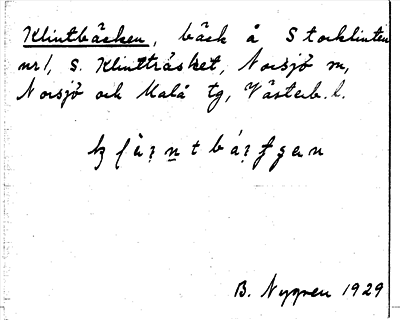 Klintbäcken, bäck å Stocklinten
nr 1, S. Klintträsket, Norsjö sn,
Norsjö och Malå tg, Västerb. l.
B. Nygren 1929